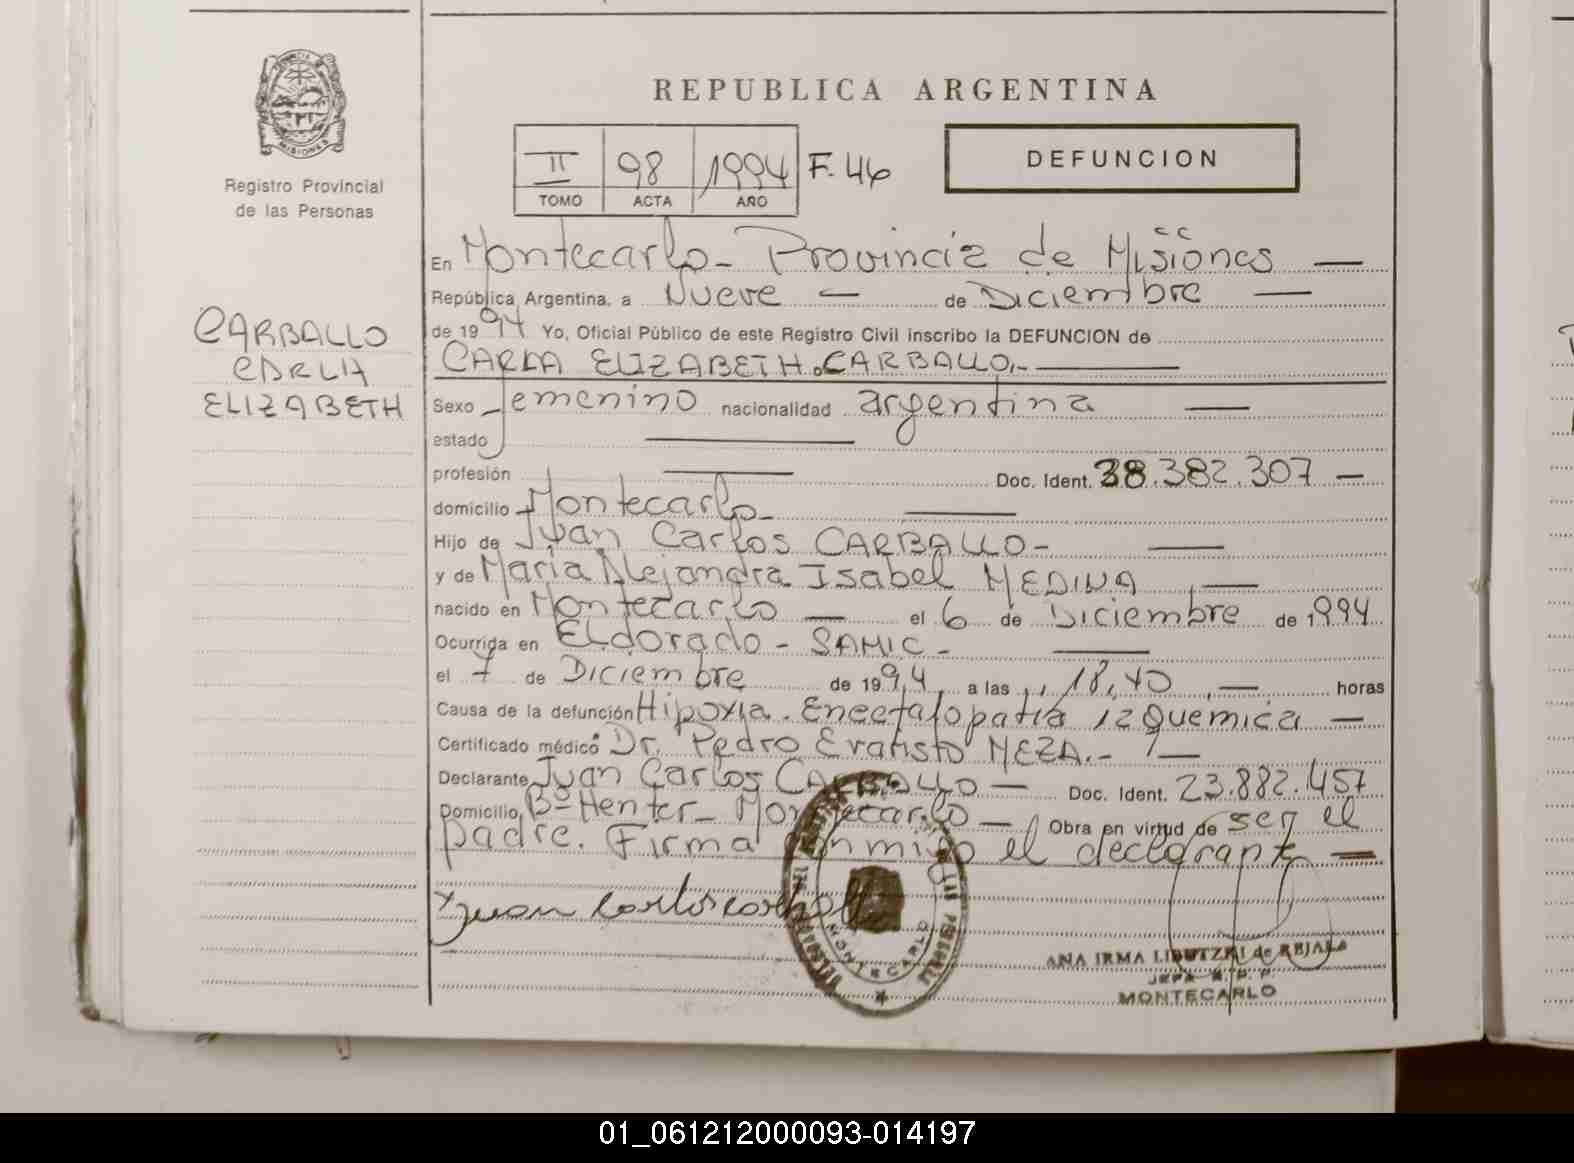 REPUBLICA ARGENTINA
MISIONES
Registro Provincial
de las Personas
II 98 1994 F. 46
TOMO ACTA AÑO
DEFUNCION
CARBALLO
CARLA
ELIZABETH
En Montecarlo - Provincia de Misiones —
República Argentina, a Nueve — de Diciembre —
de 1994 Yo, Oficial Público de este Registro Civil inscribo la DEFUNCION de
CARLA ELIZABETH CARBALLO.-
Sexo femenino nacionalidad argentina —
estado —
profesión — Doc. Ident. 38.382.307 —
domicilio Montecarlo - —
Hijo de Juan Carlos CARBALLO - —
y de Maria Alejandra Isabel MEDINA —
nacido en Montecarlo — el 6 de Diciembre de 1994
Ocurrida en Eldorado - SAMIC - —
el 7 de Diciembre de 1994 a las 18,40 — horas
Causa de la defunción Hipoxia. Encefalopatia izquemica —
Certificado médico Dr. Pedro Evaristo MEZA.- —
Declarante Juan Carlos CARBALLO — Doc. Ident. 23.882.457
Domicilio Bº Henter - Montecarlo — Obra en virtud de ser el
padre. Firma conmigo el declarante —
x Juan Carlos Carballo
MONTECARLO
ANA IRMA de REJALA
JEFA R. P. P.
MONTECARLO
01_061212000093-014197